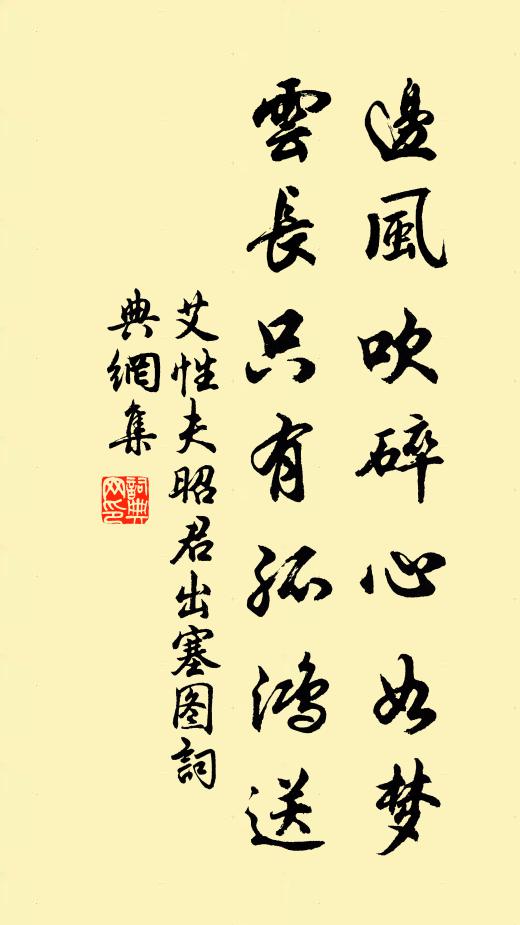 邊風吹碎心如梦
雲長只有孤鴻送
艾性夫昭君出塞图詞
典網集
詞典
网印